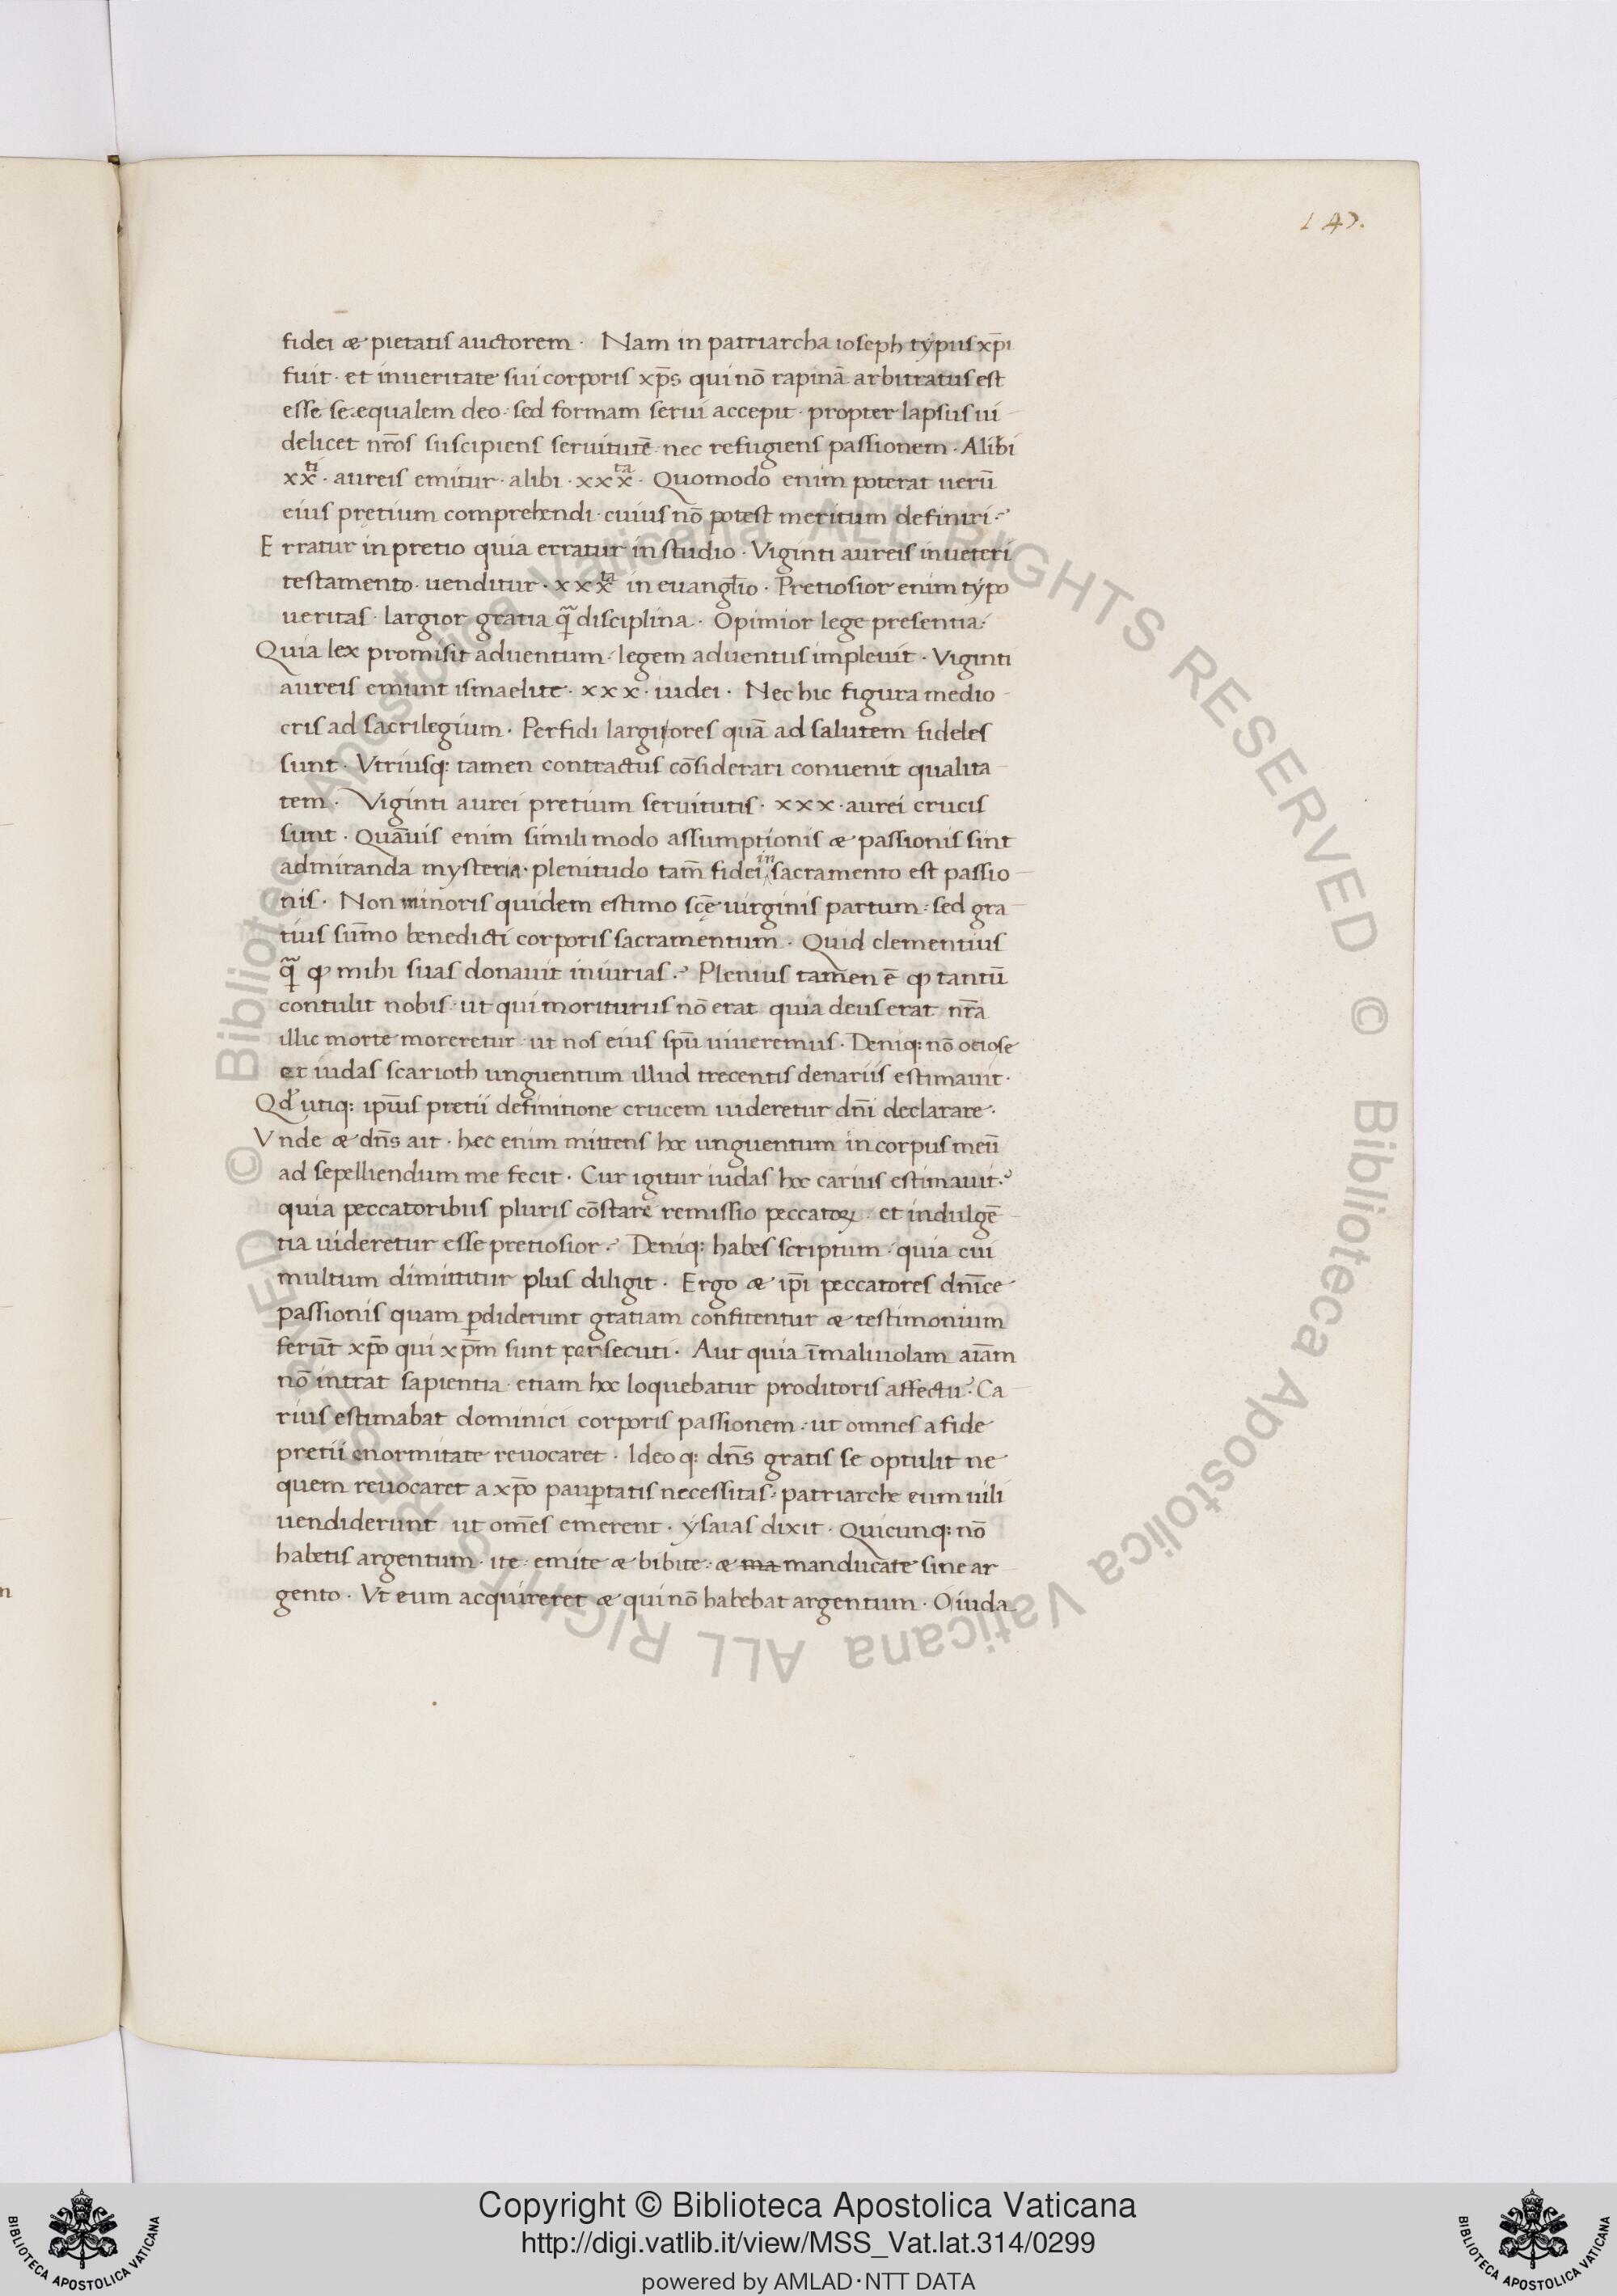 147.
fidei & pietatis auctorem · Nam in patriarcha ioseph typus xp̄i
fuit · et in ueritate sui corporis xp̄s qui nō rapinā arbitratus est
esse se equalem deo · sed formam serui accepit · propter lapsus ui
delicet nr̄os suscipiens seruitutē · nec refugiens passionem · Alibi
xx^ti · aureis emitur · alibi · xxx^ta · Quomodo enim poterat uerū
eius pretium comprehendi · cuius nō potest meritum definiri ?
Erratur in pretio quia erratur in studio · Viginti aureis in ueteri
testamento · uenditur · xxx^ta in euangl̄io · Pretiosior enim typo
ueritas · largior gratia q̄ disciplina · Opimior lege presentia :
Quia lex promisit aduentum · legem aduentus impleuit · Viginti
aureis emunt ismaelite · xxx · iudei · Nec hic figura medio
cris ad sacrilegium · Perfidi largitores quā ad salutem fideles
sunt · Vtriusq: tamen contractus cōsiderari conuenit qualita
tem · Viginti aurei pretium seruitutis · xxx · aurei crucis
sunt · Quāuis enim simili modo assumptionis & passionis sint
admiranda mysteria · plenitudo tam̄ fidei in sacramento est passio
nis · Non minoris quidem estimo sc̄ę uirginis partum : sed gra
tius sum̄o benedicti corporis sacramentum · Quid clementius
q̄ qp mihi suas donauit iniurias ? Plenius tamen ē qp tantū
contulit nobis · ut qui moriturus nō erat quia deus erat nr̄a
illic morte moreretur · ut nos eius spū uiueremus · Deniq: nō otiose
et iudas scarioth unguentum illud trecentis denariis estimauit ·
Qd' utiq: ip̄ius pretii definitione crucem uideretur dn̄i declarare ·
Vnde & dn̄s ait · hęc enim mittens hoc unguentum in corpus meū
ad sepelliendum me fecit · Cur igitur iudas hoc carius estimauit ?
quia peccatoribus pluris cōstaret remissio peccatoꝝ · et indulgē
tia uideretur esse pretiosior ? Deniq: habes scriptum · quia cui
multum dimittitur plus diligit · Ergo & ip̄i peccatores dn̄ice
passionis quam ꝑdiderunt gratiam confitentur & testimonium
ferūt xp̄o qui xp̄m sunt persecuti · Aut quia ī maliuolam aīam
nō intrat sapientia · etiam hoc loquebatur proditoris affectu ? Ca
rius estimabat dominici corporis passionem · ut omnes a fide
pretii enormitate reuocaret · Ideo q: dn̄s gratis se optulit ne
quem reuocaret a xp̄o pauꝑtatis necessitas : patriarche eum uili
uendiderunt ut om̄es emerent · ysaias dixit · Quicunq: nō
habetis argentum · ite · emite & bibite · & ma manducate sine ar
gento · Vt eum acquireret & qui nō habebat argentum · O iuda
n
© Biblioteca Apostolica Vaticana ALL RIGHTS RESERVED © Biblioteca Apostolica Vaticana ALL RIGHTS RESERVED
Copyright © Biblioteca Apostolica Vaticana
http://digi.vatlib.it/view/MSS_Vat.lat.314/0299
powered by AMLAD·NTT DATA
BIBLIOTECA APOSTOLICA VATICANA
BIBLIOTECA APOSTOLICA VATICANA